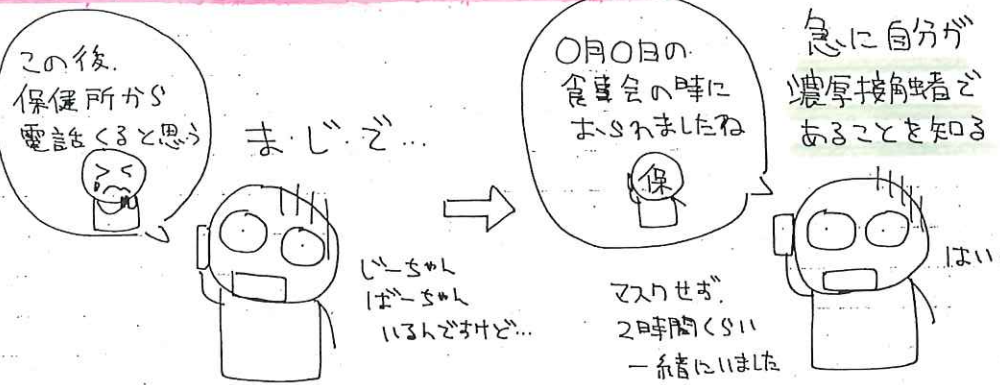 この後、
保健所から
電話くると思う
ま・じ・で…
じーちゃん
ばーちゃん
いるんですけど…
〇月〇日の
食事会の時に
おられましたね
保
急に自分が
濃厚接触者で
あることを知る
はい
マスクせず、
2時間くらい
一緒にいました